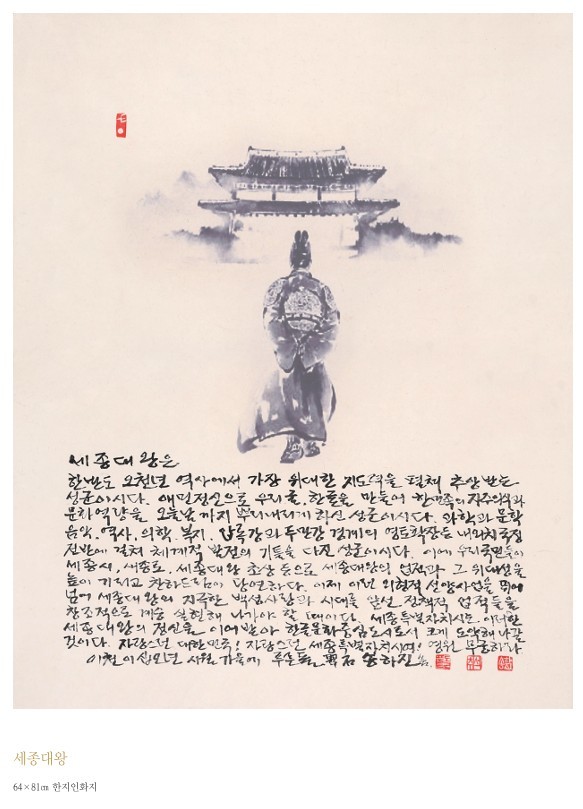 세종대왕은
한반도 오천년 역사에서 가장 위대한 지도력을 펼쳐 추앙받는
성군이시다. 애민정신으로 우리글, 한글을 만들어 한민족의 자주의식과
문화역량을 오늘날까지 뿌리내리게 하신 성군이시다. 과학과 문학
음악, 역사, 의학, 복지, 압록강과 두만강 경계의 영토확장등 내외치국정
전반에 걸쳐 체계적 발전의 기틀을 다진 성군이시다. 이에 우리국민들이
세종시, 세종로, 세종대왕 초상 등으로 세종대왕의 업적과 그 위대성을
높이 기리고 찬하드림이 당연하다. 이제 이런 외형적 선양사업을 뛰어
넘어 세종대왕의 지극한 백성사랑과 시대를 앞선 정책적 업적들을
창조적으로 계승 실현해 나가야 할 때이다. 세종특별자치시는 이러한
세종대왕의 정신을 이어받아 한글문화중심도시로서 크게 도약해 나갈
것이다. 자랑스런 대한민국! 자랑스런 세종특별자치시여! 영원 무궁하라
이천이십오년 시월 가을에 송하진
세종대왕
64×81㎝ 한지인화지